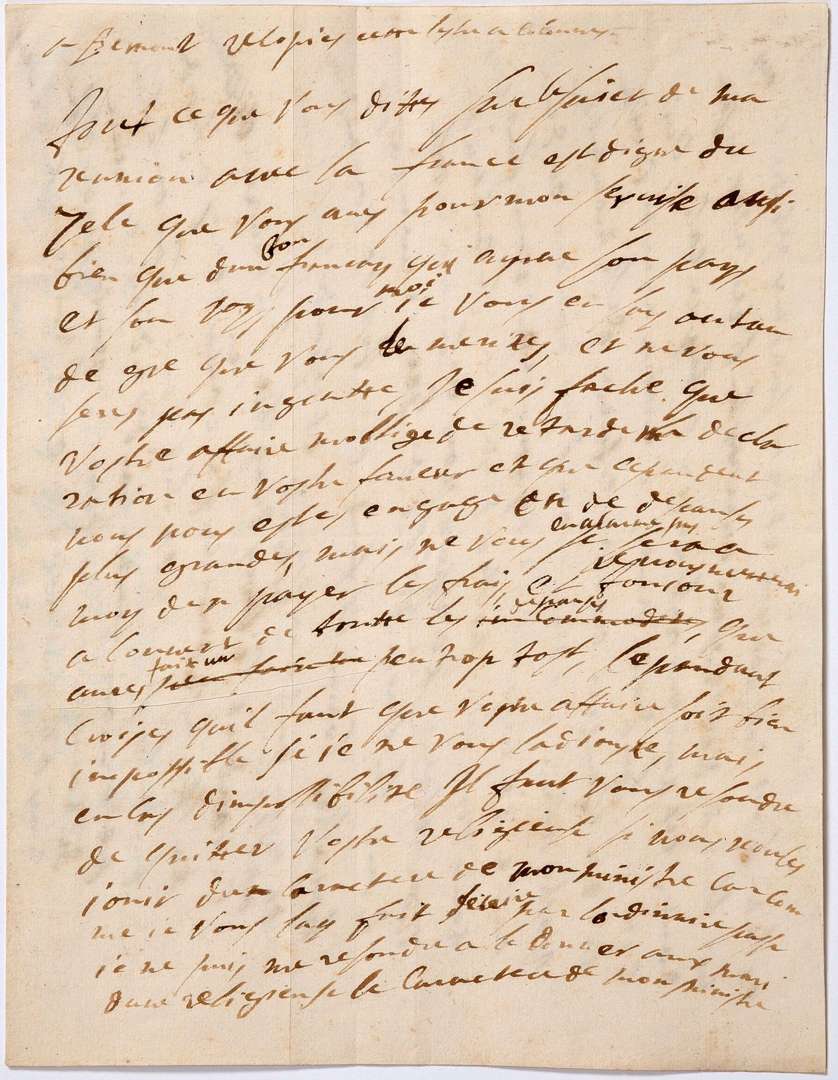 recopies cette lettre
Tout ce que vous dittes sur le suiet de ma
reunion avec la france est digne du
Zele que vous aves pour mon servise aussi
bien que dun bon francoys qui ayme son pays
et son roy, pour moi ie vous en say autan
de gre que vous le merites, et ne vous
seres pas ingratte, Je suis fache que
vostre affaire moblige de retarder la decla
ration en vostre faveur et que cependant
vous vous estes engage en de despanses
plus grandes, mais ne vous en alarme pas ce sera a
moy den payer les frais et ie vous metterai tousiour
a couvert de toutte les despanses incommodites, que
aures fait un peu trop tost, Cependant
Croyes quil faut que vostre affaire soit bien
impossible si ie ne vous ladiouste, mais
en cas dimpossibilite Il faut vous resoudre
de quitter vostre religieuse si vous voules
iouir du caractere de mon ministre car com
me ie vous lay fait escrire par lordinaire passe
ie ne puis me resoudre a le donner aux mari
dune religieuse le Caractere de mon ministre